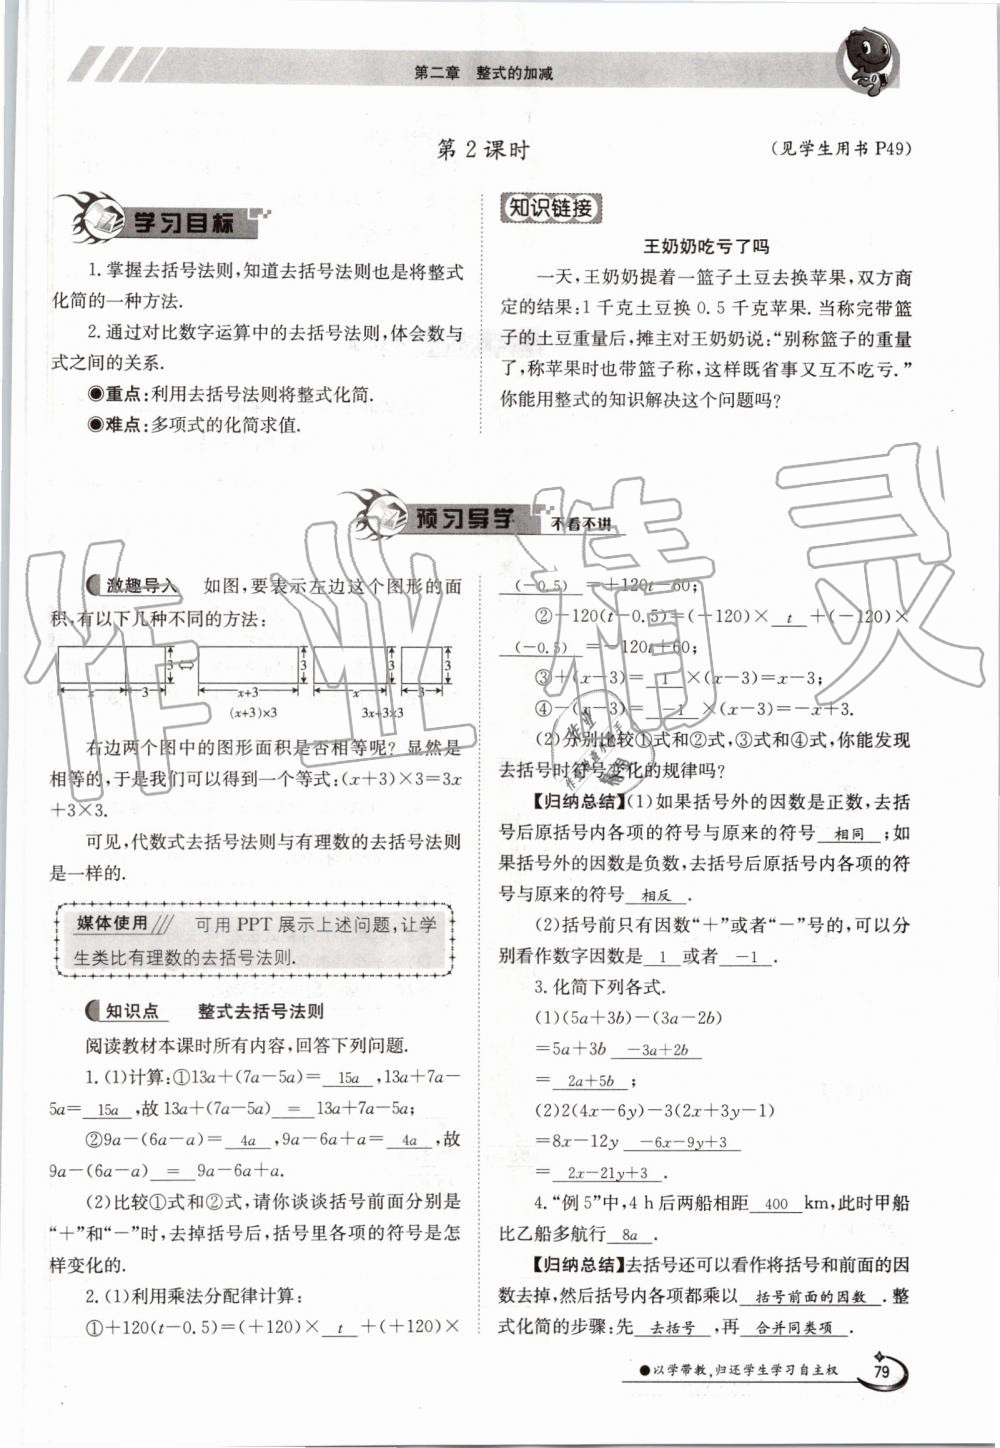 第二章　整式的加减
第2课时
(见学生用书 P49)
学习目标
1. 掌握去括号法则,知道去括号法则也是将整式
化简的一种方法.
2. 通过对比数字运算中的去括号法则,体会数与
式之间的关系.
◉重点:利用去括号法则将整式化简.
◉难点:多项式的化简求值.
知识链接
王奶奶吃亏了吗
一天,王奶奶提着一篮子土豆去换苹果,双方商
定的结果:1 千克土豆换 0.5 千克苹果. 当称完带篮
子的土豆重量后,摊主对王奶奶说:“别称篮子的重量
了,称苹果时也带篮子称,这样既省事又互不吃亏.”
你能用整式的知识解决这个问题吗?
预习导学 不看不讲
激趣导入　如图,要表示左边这个图形的面
积,有以下几种不同的方法:
3 ⇔ 3 3 3
x 3 x+3 x 3
(x+3)×3 3x+3×3
右边两个图中的图形面积是否相等呢? 显然是
相等的,于是我们可以得到一个等式:(x+3)×3=3x
+3×3.
可见,代数式去括号法则与有理数的去括号法则
是一样的.
媒体使用/// 可用 PPT 展示上述问题,让学
生类比有理数的去括号法则.
知识点　整式去括号法则
阅读教材本课时所有内容,回答下列问题.
1. (1)计算:①13a+(7a-5a)= 15a ,13a+7a-
5a= 15a ,故 13a+(7a-5a) = 13a+7a-5a;
②9a-(6a-a)= 4a ,9a-6a+a= 4a ,故
9a-(6a-a) = 9a-6a+a.
(2)比较①式和②式,请你谈谈括号前面分别是
“+”和“-”时,去掉括号后,括号里各项的符号是怎
样变化的.
2. (1)利用乘法分配律计算:
①+120(t-0.5)=(+120)× t +(+120)×
(-0.5) =+120t-60;
②-120(t-0.5)=(-120)× t +(-120)×
(-0.5) =-120t+60;
③+(x-3)= 1 ×(x-3)=x-3;
④-(x-3)= -1 ×(x-3)=-x+3.
(2)分别比较①式和②式,③式和④式,你能发现
去括号时符号变化的规律吗?
【归纳总结】(1)如果括号外的因数是正数,去括
号后原括号内各项的符号与原来的符号 相同 ;如
果括号外的因数是负数,去括号后原括号内各项的符
号与原来的符号 相反 .
(2)括号前只有因数“+”或者“-”号的,可以分
别看作数字因数是 1 或者 -1 .
3. 化简下列各式.
(1)(5a+3b)-(3a-2b)
=5a+3b -3a+2b
= 2a+5b ;
(2)2(4x-6y)-3(2x+3y-1)
=8x-12y -6x-9y+3
= 2x-21y+3 .
4. “例 5”中,4 h 后两船相距 400 km,此时甲船
比乙船多航行 8a .
【归纳总结】去括号还可以看作将括号和前面的因
数去掉,然后括号内各项都乘以 括号前面的因数 . 整
式化简的步骤:先 去括号 ,再 合并同类项 .
●以学带教,归还学生学习自主权
79
作业精灵